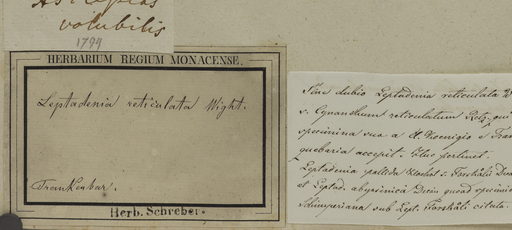 Asclepias
volubilis
1794
HERBARIUM REGIUM MONACENSE.
Leptadenia reticulata Wight.
Trankenbar.
Herb. Schreber.
Sine dubio Leptadenia reticulata W
s. Cynanchum reticulatum Retz. qui
specimina sua a cl. Koenigio e Tran
quebaria accepit. Huc pertinet.
Leptadenia pallida Hochst. s. Forskåli Decai
et Leptad. abyssinica Decn quoad specimin
Schimperiana sub Lept. Forskåli citata.